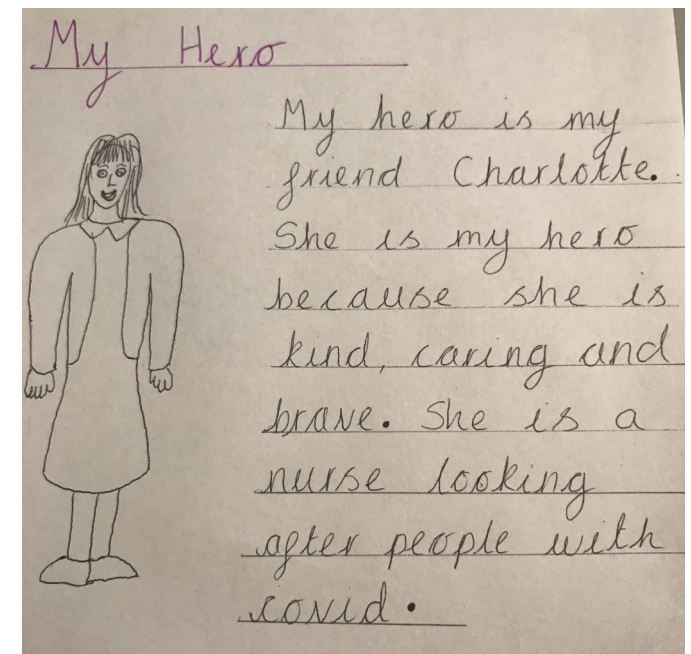 My Hero
My hero is my
friend Charlotte.
She is my hero
because she is
kind, caring and
brave. She is a
nurse looking
after people with
covid.